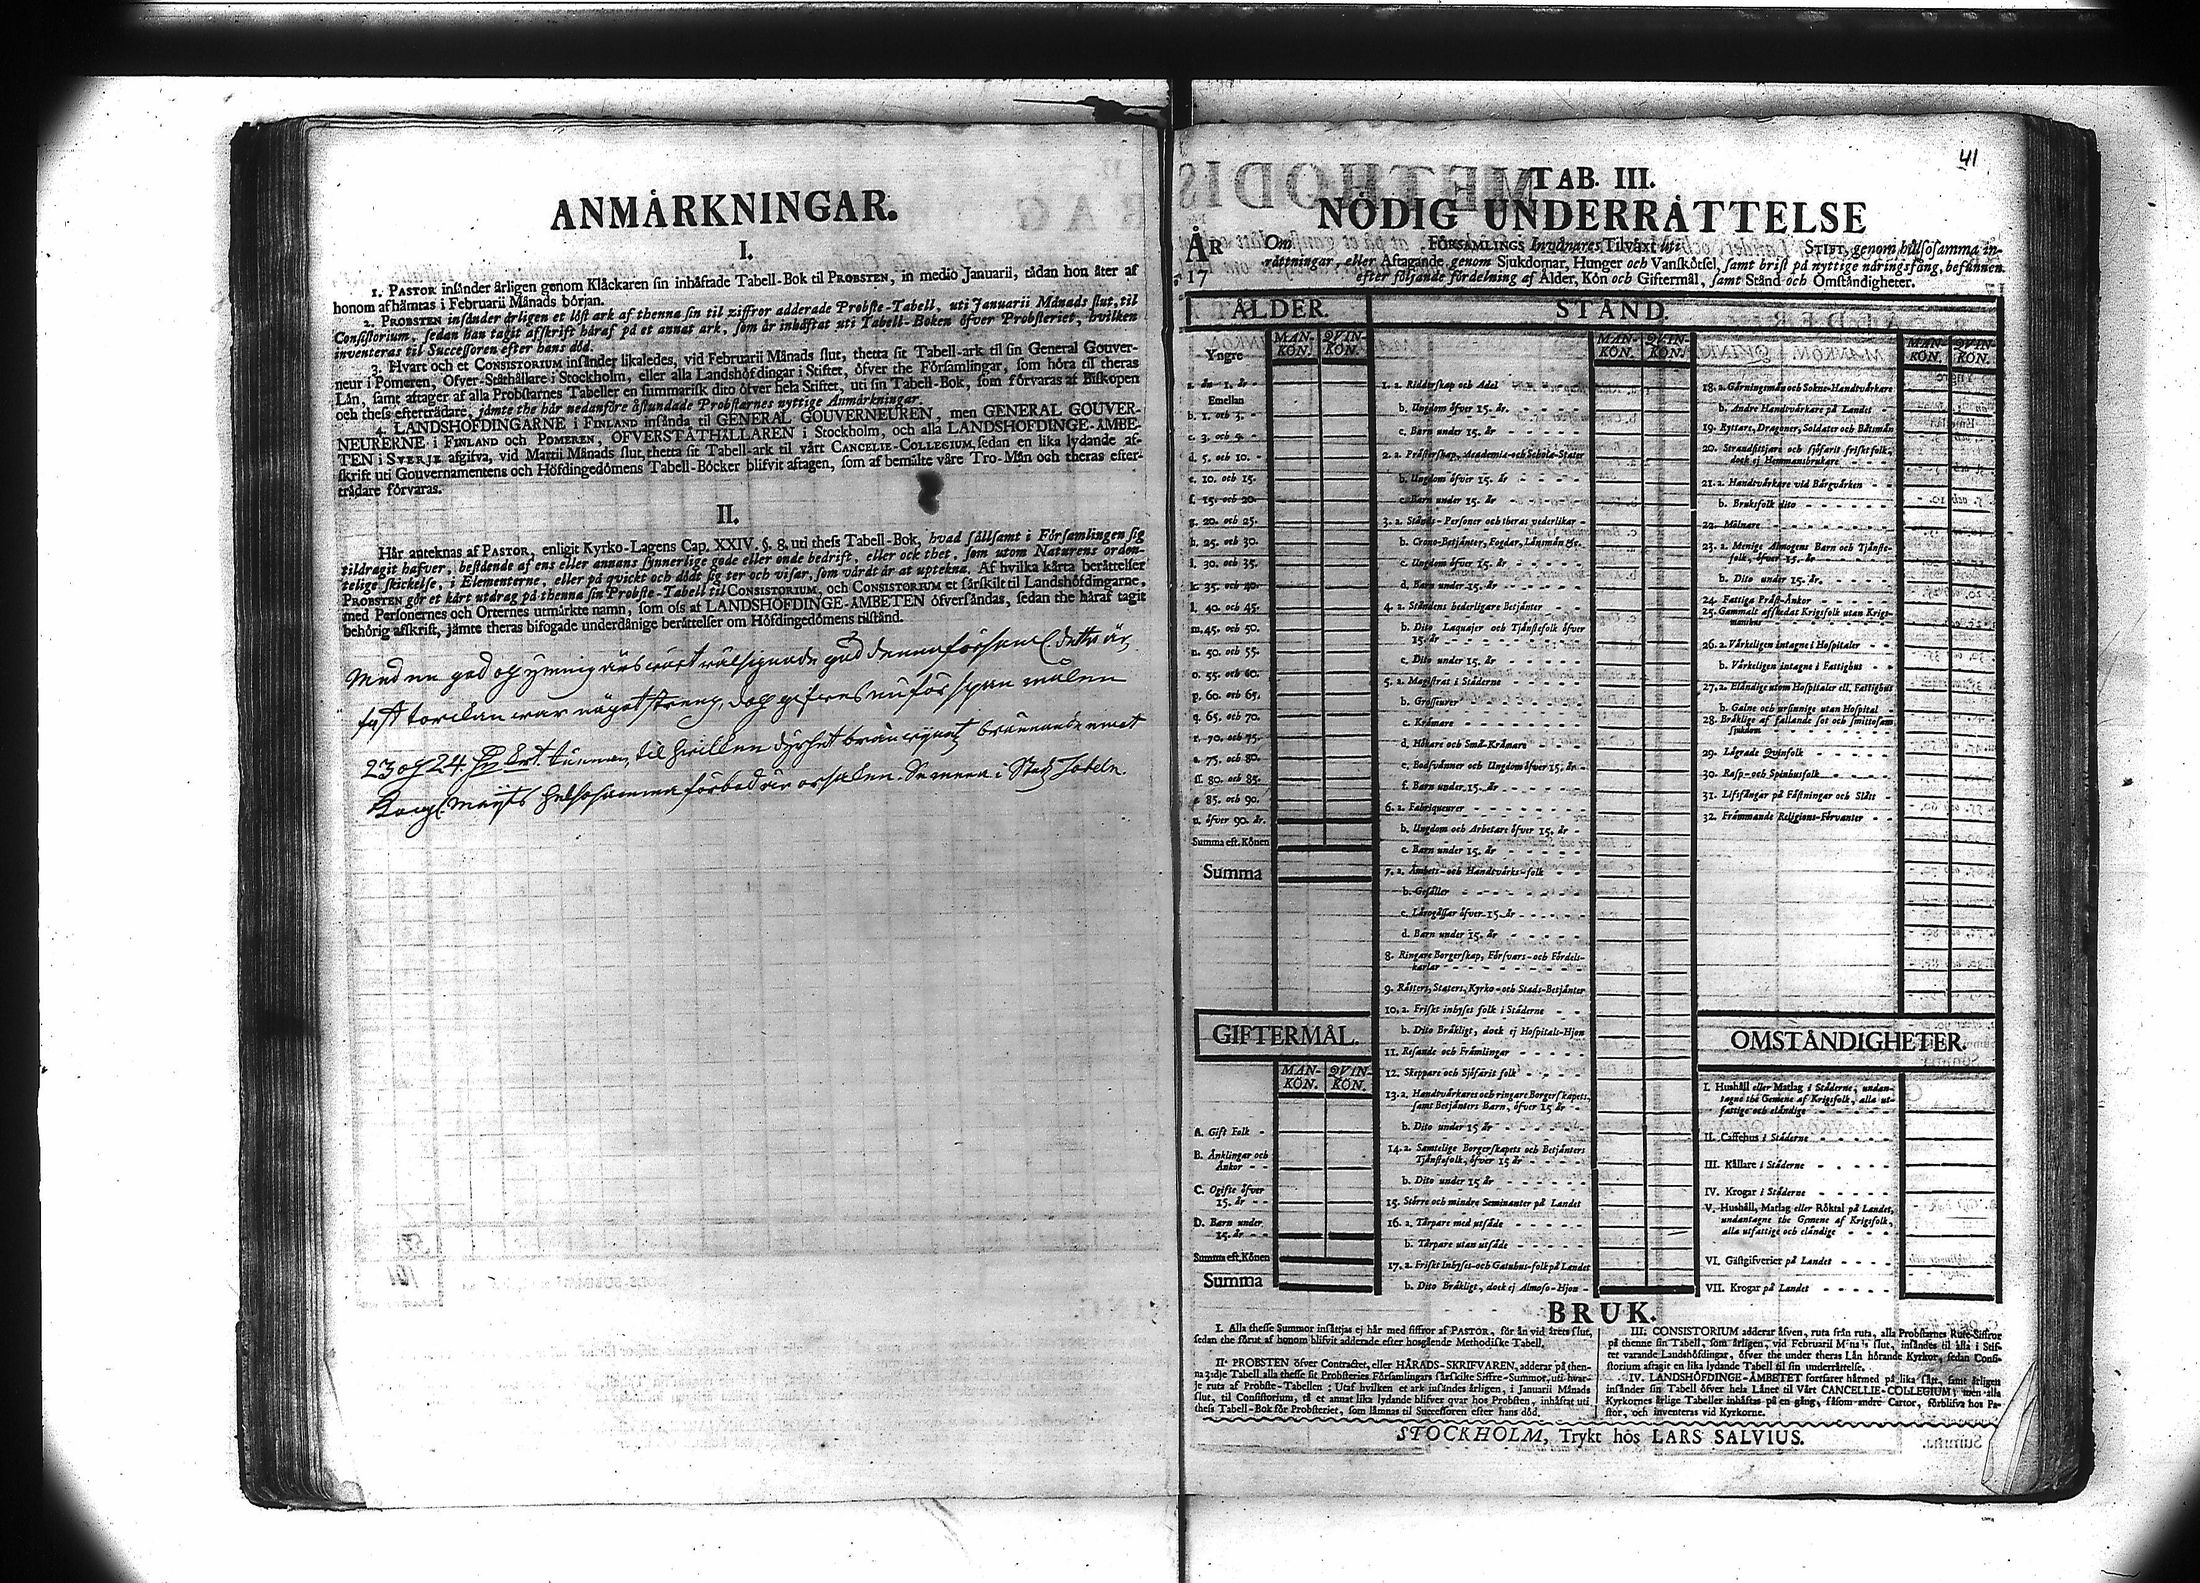 ANMÅRKNINGAR.
I.
1. PASTOR insånder årligen genom Klåckaren sin inhåftade Tabell-Bok til PROBSTEN, in medio Januarii, tådan hon åter af
honom afhåmtas i Februarii Månads början.
2. PROBSTEN insånder årligen et löst ark af thenna sin til ziffror adderade Probste-Tabell, uti Januarii Månads slut, til
Consistorium, sedan han tagit afskrift håraf på et annat ark, som år inhåftat uti Tabell-Boken öfver Probsteriet, hvilken
inventeras til Successoren efter hans död.
3. Hvart och et CONSISTORIUM insånder likaledes, vid Februarii Månads slut, thetta sit Tabell-ark til sin General Gouver-
neur i Pomeren, Öfver-Ståthållare i Stockholm, eller alla Landshöfdingar i Stiftet, öfver the Församlingar, som höra til theras
Lån, samt aftager af alla Probstarnes Tabeller en summarisk dito öfver hela Stiftet, uti sin Tabell-Bok, som förvaras af Biskopen
och thess eftertrådare, jåmte the hår nedanföre åstundade Probstarnes nyttige Anmårkningar.
4. LANDSHÖFDINGARNE i FINLAND insånda til GENERAL GOUVERNEUREN, men GENERAL GOUVER-
NEURERNE i FINLAND och POMEREN, ÖFVERSTÅTHÅLLAREN i Stockholm, och alla LANDSHÖFDINGE-ÅMBE-
TEN i SVERJE afgifva, vid Martii Månads slut, thetta sit Tabell-ark til vårt CANCELIE-COLLEGIUM, sedan en lika lydande af-
skrift uti Gouvernamentens och Höfdingedömens Tabell-Böcker blifvit aftagen, som af bemålte våre Tro-Mån och theras efter-
trådare förvaras.
II.
Hår anteknas af PASTOR, enligit Kyrko-Lagens Cap. XXIV. §. 8. uti thess Tabell-Bok, hvad sållsamt i Församlingen sig
tildragit hafver, bestående af ens eller annans synnerlige gode eller onde bedrift, eller ock thet, som utom Naturens orden-
telige skickelse, i Elementerne, eller på qvickt och dödt sig ter och visar, som vårdt år at uptekna. Af hvilka kårta beråttelser
PROBSTEN gör et kårt utdrag på thenna sin Probste-Tabell til CONSISTORIUM, och CONSISTORIUM et sårskilt til Landshöfdingarne,
med Personernes och Orternes utmårkte namn, som oss af LANDSHÖFDINGE-ÅMBETEN öfversåndas, sedan the håraf tagit
behörig afskrift, jåmte theras bifogade underdånige beråttelser om Höfdingedömens tilstånd.
Med en god og ymnig årswåxt wälsignade gud denna försam(l. detta år
fast torckan war något streng, dog
23 og 24. til hwilken dyrhet
förbod är orsaken.
41
TAB. III.
NÖDIG UNDERRÅTTELSE
ÅR Om FÖRSAMLINGS Inwånares Tilvåxt uti STIFT, genom hålsosamma in-
17 råttningar, eller Aftagande genom Sjukdomar, Hunger och Vanskötsel, samt brist på nyttige nåringsfång, befunnen
efter följande fördelning af Ålder, Kön och Giftermål, samt Stånd och Omståndigheter.
ÅLDER. STÅND.
MAN-KÖN. QVIN-KÖN.
Yngre
a. ån 1. år -
Emellan
b. 1. och 3. -
c. 3. och 5. -
d. 5. och 10. -
e. 10. och 15.
f. 15. och 20.
g. 20. och 25.
h. 25. och 30.
i. 30. och 35.
k. 35. och 40.
l. 40. och 45.
m. 45. och 50.
n. 50. och 55.
o. 55. och 60.
p. 60. och 65.
q. 65. och 70.
r. 70. och 75.
s. 75. och 80.
ss. 80. och 85.
t. 85. och 90.
u. öfver 90. år.
Summa eft. Könen
Summa
GIFTERMÅL.
MAN-KÖN. QVIN-KÖN.
A. Gift Folk -
B. Änklingar och
Änkor - -
C. Ogifte öfver
15. år - -
D. Barn under
15. år - -
Summa eft. Könen
Summa
MAN-KÖN. QVIN-KÖN.
1. a. Ridderskap och Adel
b. Ungdom öfver 15. år.
c. Barn under 15. år
2. a. Pråsterskap, Academia-och Schola-Stater
b. Ungdom öfver 15. år
c. Barn under 15. år
3. a. Stånds-Personer och theras vederlikar -
b. Crono-Betjånter, Fogdar, Lånsmån &c.
c. Ungdom öfver 15. år
d. Barn under 15. år
4. a. Ståndens hederligare Betjånter
b. Dito Laquajer och Tjånstefolk öfver
15. år
c. Dito under 15. år
5. a. Magistrat i Ståderne
b. Grosseurer
c. Kråmare
d. Hökare och Små-Kråmare
e. Bodsvånner och Ungdom öfver 15. år -
f. Barn under 15. år
6. a. Fabriqueurer
b. Ungdom och Arbetare öfver 15. år
c. Barn under 15. år
7. a. Åmbets-och Handtvårks-folk
b. Gesåller
c. Lårogåssar öfver 15 år
d. Barn under 15. år
8. Ringare Borgerskap, Försvars-och Fördels-
karlar
9. Råtters, Staters, Kyrko-och Stads-Betjånter
10. a. Friskt inhyses folk i Ståderne
b. Dito Bråkligt, dock ej Hospitals-Hjon
11. Resande och Fråmlingar
12. Skeppare och Sjöfårit folk
13. a. Handtvårkares och ringare Borgerskapets,
samt Betjånters Barn, öfver 15 år -
b. Dito under 15 år
14. a. Samtelige Borgerskapets och Betjånters
Tjånstefolk, öfver 15 år
b. Dito under 15 år
15. Större och mindre Seminanter på Landet
16. a. Tårpare med utsåde
b. Tårpare utan utsåde
17. a. Friskt Inhyses-och Gatuhus-folk på Landet
b. Dito Bråkligt, dock ej Almoso-Hjon -
MAN-KÖN. QVIN-KÖN.
18. a. Gårningsmån och Sokne-Handtvårkare
b. Andre Handtvårkare på Landet
19. Ryttare, Dragoner, Soldater och Båtsmån
20. Strandsittjare och sjöfårit friskt folk,
dock ej Hemmansbrukare
21. a. Handtvårkare vid Bårgvårken
b. Bruksfolk dito
22. Mölnare
23. a. Menige Almogens Barn och Tjånste-
folk, öfver 15. år
b. Dito under 15. år.
24. Fattiga Pråst-Ånkor
25. Gammalt afskedat Krigsfolk utan Krigs-
manshus
26. a. Vårkeligen intagne i Hospitaler
b. Vårkeligen intagne i Fattighus
27. a. Elåndige utom Hospitaler ell. Fattighus
b. Galne och ursinnige utan Hospital
28. Bråklige af fallande sot och smittosam
sjukdom
29. Lågrade Qvinfolk
30. Rasp-och Spinhusfolk
31. Lifsfångar på Fåstningar och Slått
32. Fråmmande Religions-Förvanter
OMSTÅNDIGHETER.
I. Hushåll eller Matlag i Ståderne, undan-
tagne the Gemene af Krigsfolk, alla ut-
fattige och elåndige
II. Caffehus i Ståderne
III. Kållare i Ståderne
IV. Krogar i Ståderne
V. Hushåll, Matlag eller Röktal på Landet,
undantagne the Gemene af Krigsfolk,
alla utfattige och elåndige
VI. Gåstgifverier på Landet
VII. Krogar på Landet
BRUK.
I. Alla thesse Summor insåttjas ej hår med siffror af PASTOR, för ån vid årets slut,
sedan the förut af honom blifvit adderade efter hosgående Methodiske Tabell.
II. PROBSTEN öfver Contractet, eller HÅRADS-SKRIFVAREN, adderar på then-
na 3:dje Tabell alla thesse sit Probsteries Församlingars sårskilte Siffre-Summor, uti hvar-
je ruta af Probste-Tabellen: Utaf hvilken et ark insåndes årligen, i Januarii Månads
slut, til Consistorium, tå et annat lika lydande blifver qvar hos Probsten, inhåftat uti
thess Tabell-Bok för Probsteriet, som låmnas til Successoren efter hans död.
III. CONSISTORIUM adderar åfven, ruta från ruta, alla Probstarnes Rute-Siffror
på thenne sin Tabell, som årligen, vid Februarii Månads slut, insåndes til alla i Stif-
tet varande Landshöfdingar, öfver the under theras Lån hörande Kyrkor, sedan Consi-
storium aftagit en lika lydande Tabell til sin underråttelse.
IV. LANDSHÖFDINGE-ÅMBETET fortfarer hårmed på lika sått, samt årligen
insånder sin Tabell öfver hela Lånet til Vårt CANCELLIE-COLLEGIUM; men alla
Kyrkornes årlige Tabeller inhåftas på en gång, såsom andre Cartor, förblifva hos Pa-
stor, och inventeras vid Kyrkorne.
STOCKHOLM, Trykt hos LARS SALVIUS.